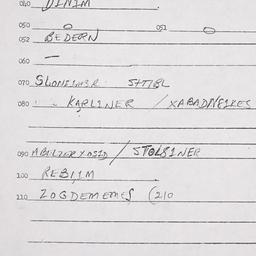 040 DINIM
050 0 051 0
052 BEDERN
060 —
070 SLONIMER SHTIBL
080 " KARLINER / XABADNIKES
090 ABULZERXOSID / STOLINER
100 REBIIM
110 ZOGDEMEMES (210